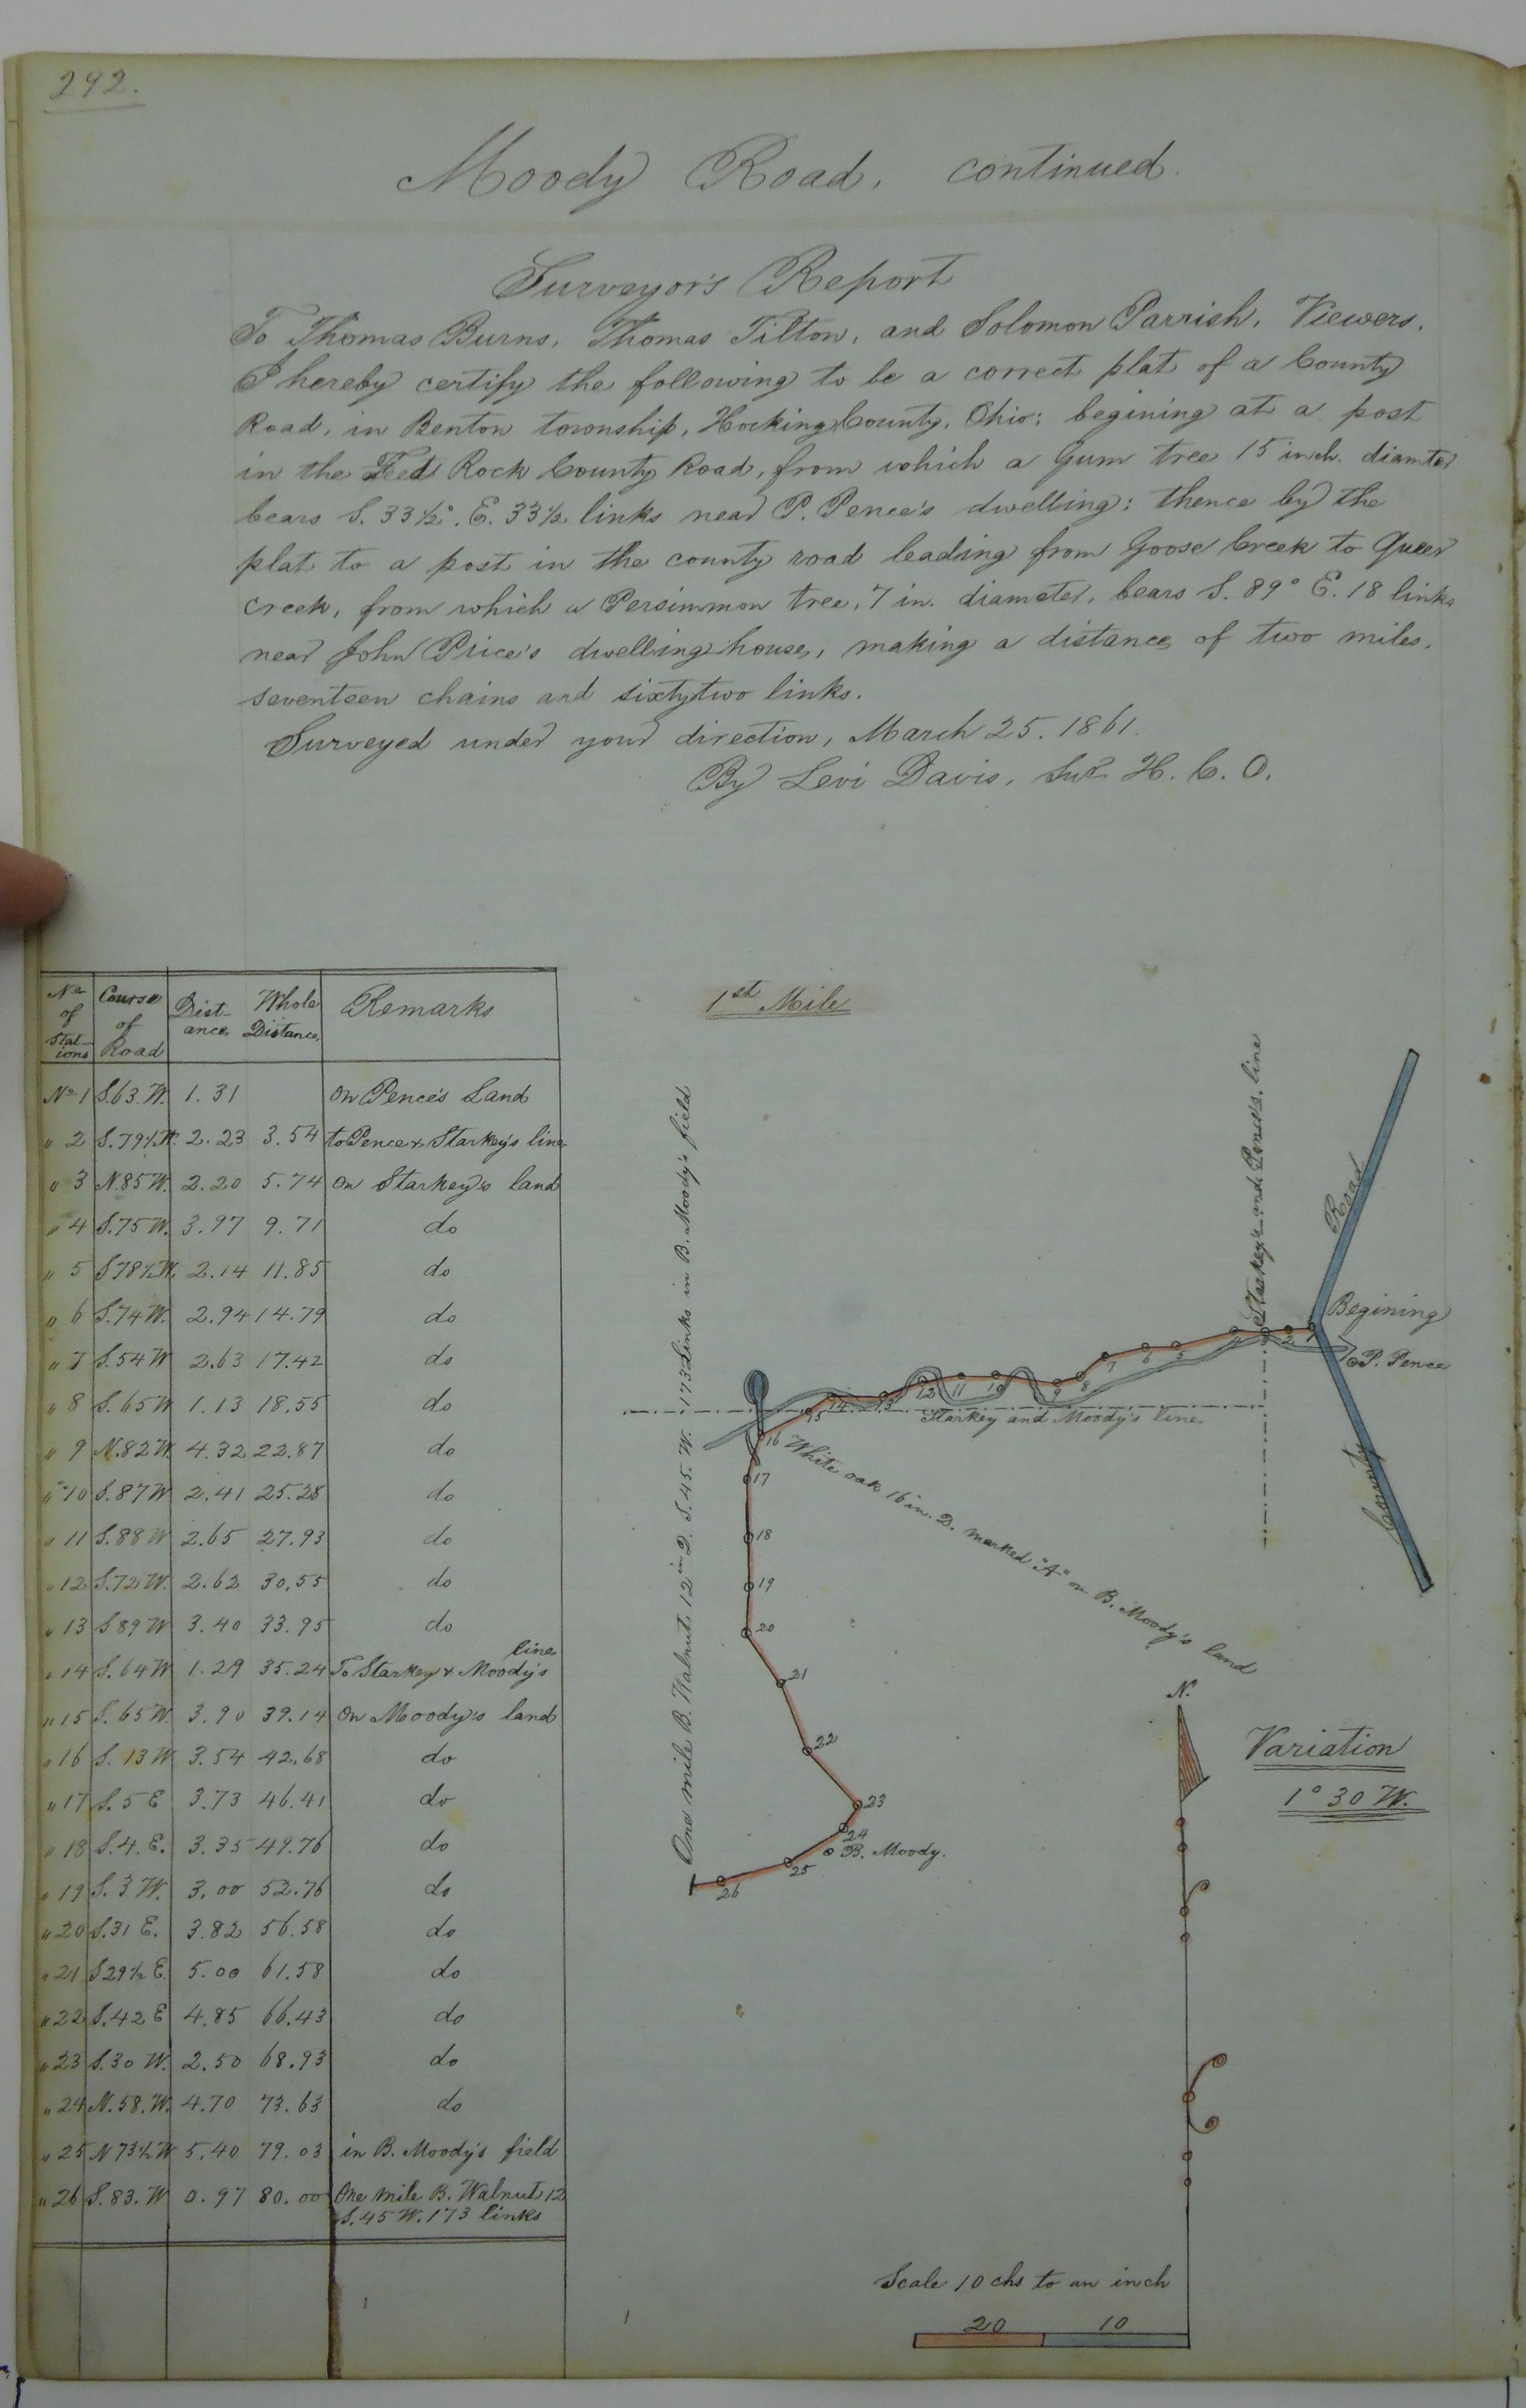 292.
Moody Road, continued.
Surveyor's Report
To Thomas Burns, Thomas Tilton, and Solomon Parrish, Viewers.
I hereby certify the following to be a correct plat of a County
Road, in Benton township, Hocking County, Ohio: begining at a post
in the Rock County Road, from which a Gum tree 15 inch. diamter
bears S. 33½°. E. 33½ links near P. Pence's dwelling: thence by the
plat to a post in the county road leading from Goose Creek to Queer
creek, from which a Persimmon tree, 7 in. diameter, bears S. 89° E. 18 links
near John Price's dwelling house, making a distance of two miles,
seventeen chains and sixtytwo links.
Surveyed under your direction, March 25. 1861.
By Levi Davis, Sur. H. C. O.
No of Stat-ions Course of Road Dist-ance Whole Distance Remarks
No 1 S.63 W. 1.31 On Pence's Land
" 2 S.79½ W. 2.23 3.54 to Pence & Starkey's line
" 3 N.85 W. 2.20 5.74 On Starkey's land
" 4 S.75 W. 3.97 9.71 do
" 5 S78½ W. 2.14 11.85 do
" 6 S.74 W. 2.94 14.79 do
" 7 S.54 W 2.63 17.42 do
" 8 S.65 W 1.13 18.55 do
" 9 N.82 W. 4.32 22.87 do
" 10 S.87 W 2.41 25.28 do
" 11 S.88 W 2.65 27.93 do
" 12 S.72 W. 2.62 30.55 do
" 13 S 89 W 3.40 33.95 do
" 14 S.64 W 1.29 35.24 To Starkey & Moody's line
" 15 S.65 W. 3.90 39.14 On Moody's land
" 16 S. 13 W 3.54 42.68 do
" 17 S. 5 E 3.73 46.41 do
" 18 S.4. E. 3.35 49.76 do
" 19 S. 3 W. 3.00 52.76 do
" 20 S.31 E. 3.82 56.58 do
" 21 S29½ E. 5.00 61.58 do
" 22 S.42 E 4.85 66.43 do
" 23 S.30 W. 2.50 68.93 do
" 24 N.58.W. 4.70 73.63 do
" 25 N 73½ W 5.40 79.03 in B. Moody's field
" 26 S.83. W 0.97 80.00 One mile B. Walnut 12
S.45 W. 173 links
1st Mile
One mile B. Walnut 12 in D. S.45. W. 173 Links in B. Moody's field
Starkey's and Pence's line
Road
Begining
P. Pence
County
1
2
3
4
5
6
7
8
9
10
11
12
13
14
15
Starkey and Moody's line
16
White oak 16 in. D. marked "A" on B. Moody's land
17
18
19
20
21
22
23
24
B. Moody.
25
26
N.
Variation
1° 30 W.
Scale 10 chs to an inch
20 10